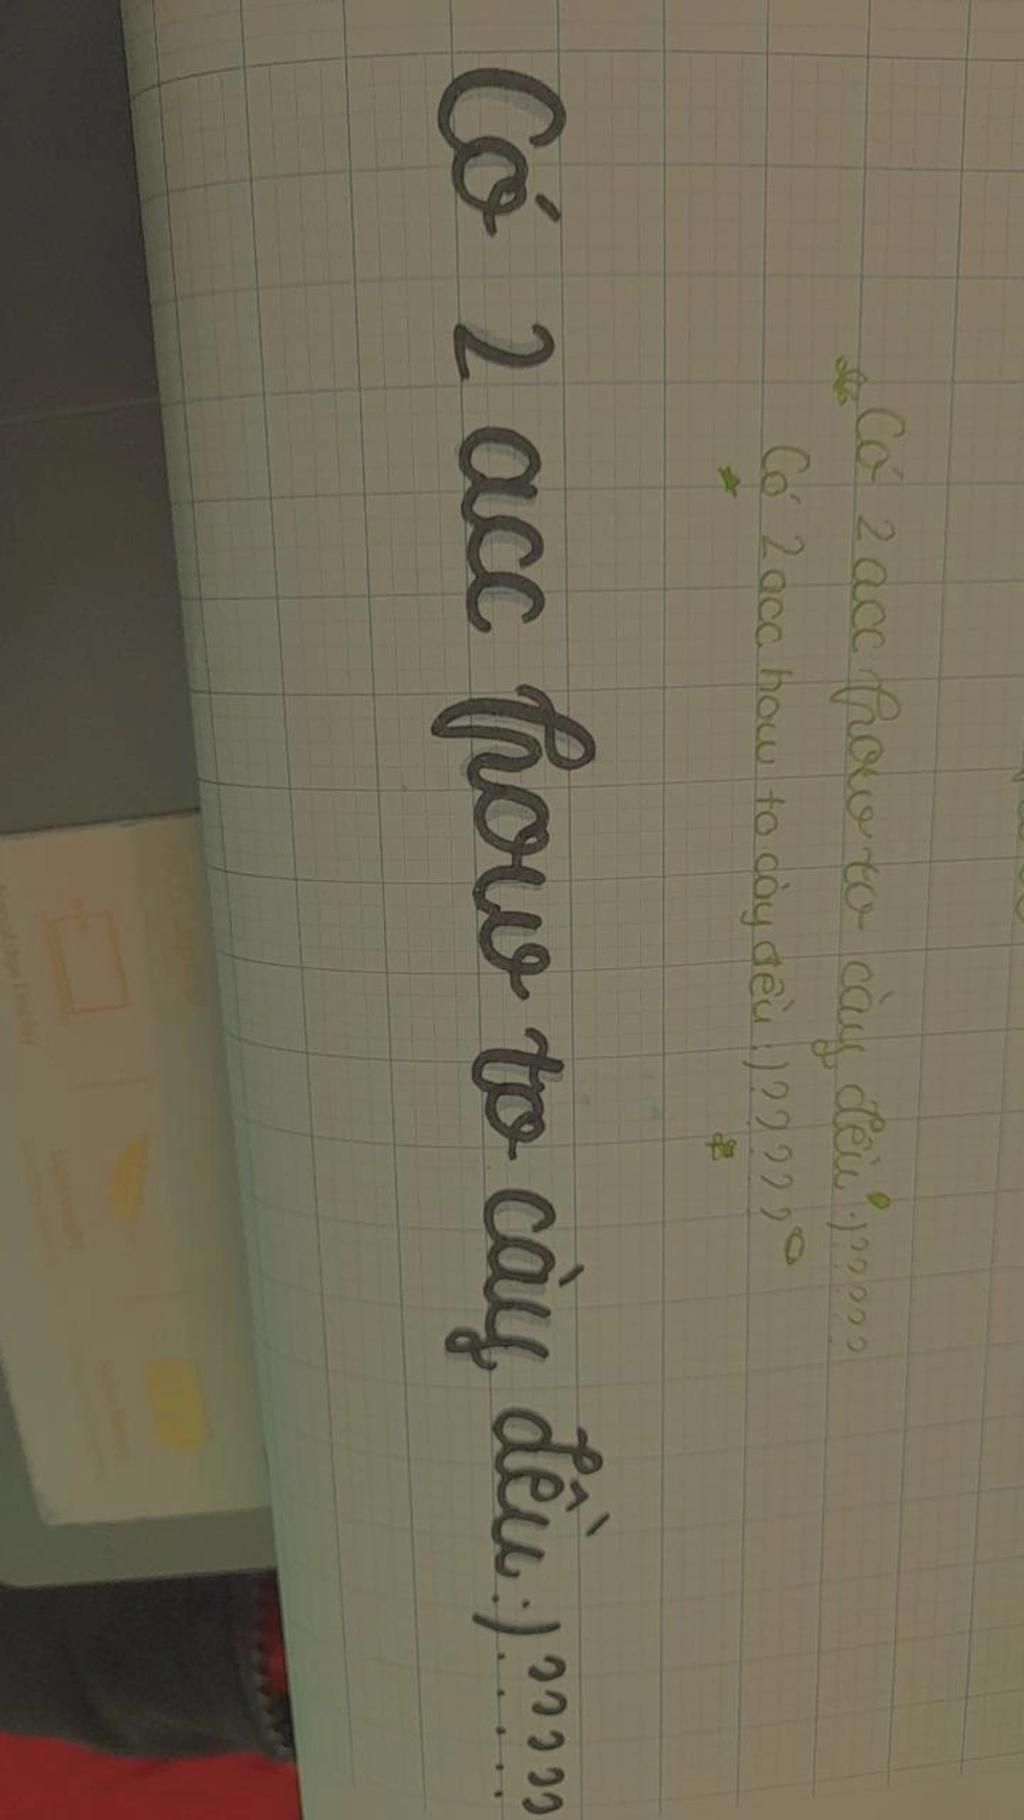 Có 2 acc how to cày đều :)?????
Có 2 acc how to cày đều :)?????
Có 2 acc how to cày đều :)??????